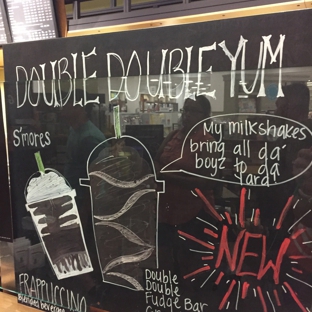 DOUBLE DOUBLE YUM
S'mores
My milkshakes
bring all da'
boyz to da
yard
NEW
FRAPPUCCINO
Blended beverage
Double
Double
Fudge Bar